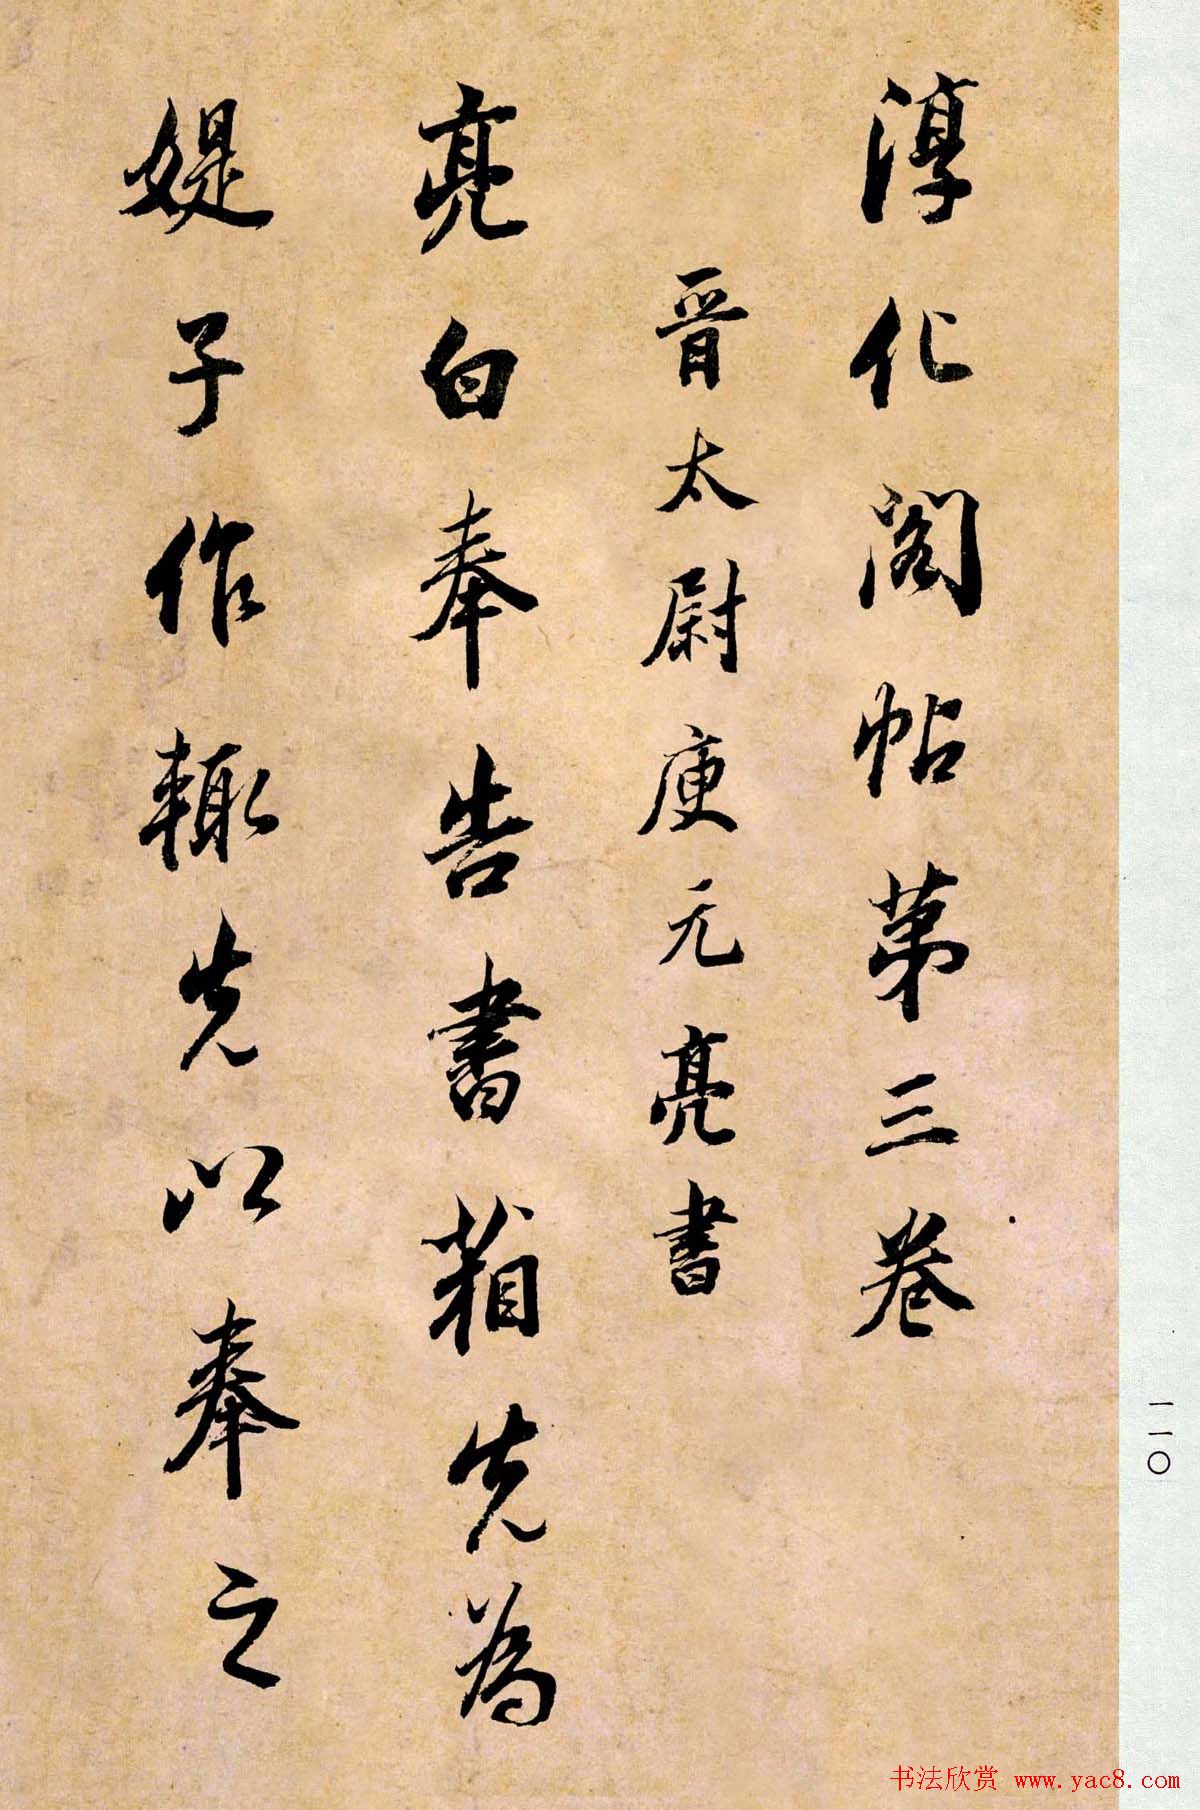 淳化阁帖第三卷
晋太尉庾元亮書
亮白奉告書箱先為
媞子作輒先以奉之
一一〇
书法欣赏 www.yac8.com